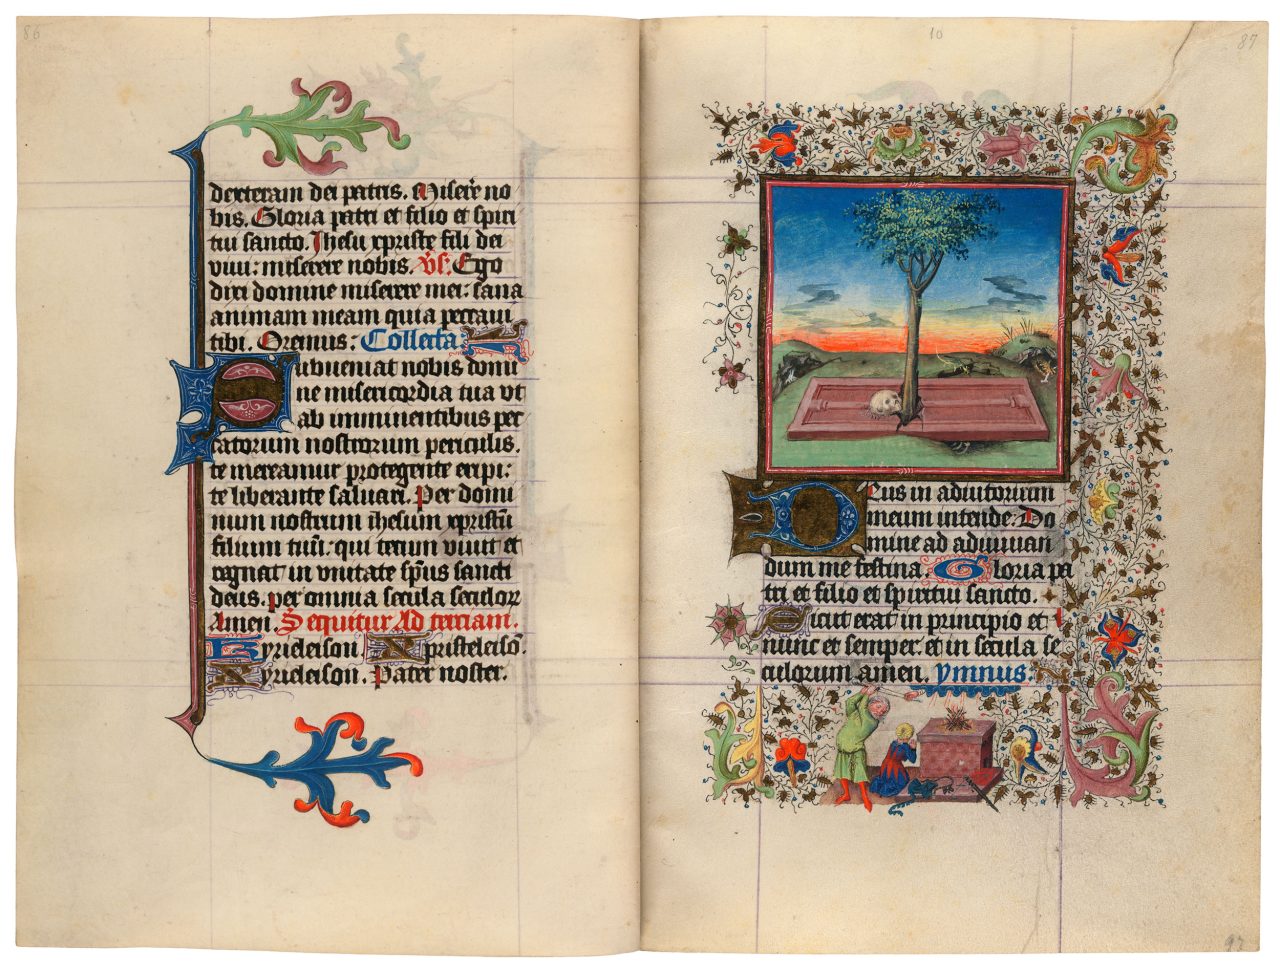 86
dexteram dei patris. Miserē no
bis. Gloria patri et filio et spiri
tui sancto. Jhesu xpriste fili dei
viui: miserere nobis. Vs. Ego
dixi domine miserere mei: sana
animam meam quia peccaui
tibi. Oremus: Collecta
Subueniat nobis domi
ne misericordia tua vt
ab imminentibus pec
catorum nostrorum periculis.
te mereamur protegente eripi:
te liberante saluari. Per domi
num nostrum ihesum xpristū
filium tuū: qui tecum viuit et
regnat in vnitate spūs sancti
deus. per omnia secula seculor
Amen. Sequitur Ad terciam.
Kyrieleison. Xpristeleisō.
Kyrieleison. Pater noster.
10
87
Deus in adiutorium
meum intende. Do
mine ad adiuuan
dum me festina. Gloria pa
tri et filio et spiritui sancto.
Sicut erat in principio et
nunc et semper. et in secula se
culorum amen. Ymnus:
97